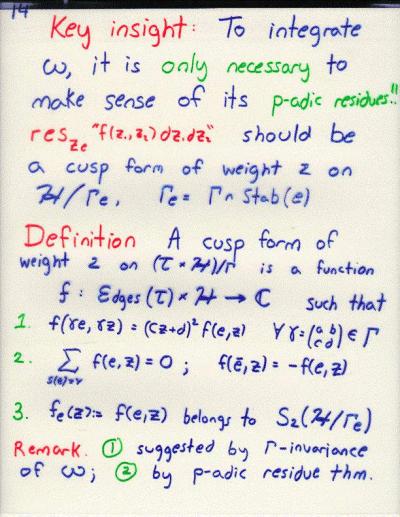 14
Key insight: To integrate
ω, it is only necessary to
make sense of its p-adic residues!!
res_{z_e} "f(z₁,z₂) dz₁dz₂" should be
a cusp form of weight 2 on
ℋ/Γe, Γe = Γ∩Stab(e)
Definition A cusp form of
weight 2 on (τ×ℋ)/Γ is a function
f : Edges(τ)×ℋ → ℂ such that
1. f(γe, γz) = (cz+d)² f(e,z) ∀γ=(a b c d)∈Γ
2. Σ_{s(e)=v} f(e,z) = 0 ; f(ē,z) = -f(e,z)
3. fe(z):= f(e,z) belongs to S₂(ℋ/Γe)
Remark. ① suggested by Γ-invariance
of ω; ② by p-adic residue thm.